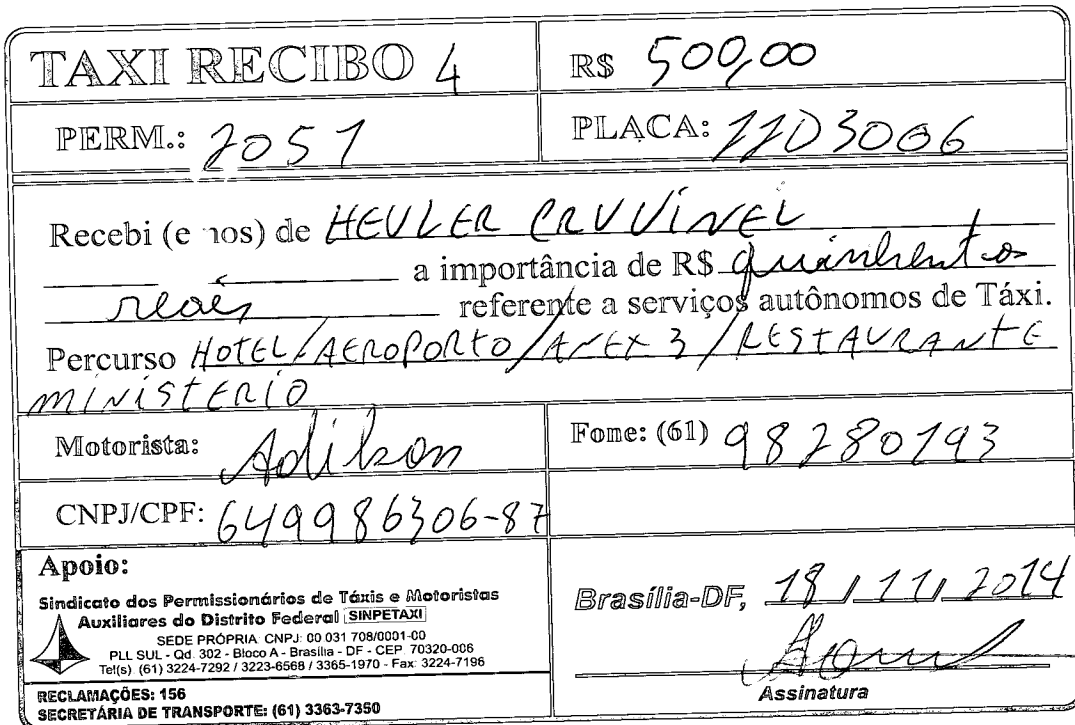 TAXI RECIBO 4
R$ 500,00
PERM.: 2051
PLACA: JJD3006
Recebi (e nos) de HEULER CRUVINEL
a importância de R$ quinhentos
reais referente a serviços autônomos de Táxi.
Percurso HOTEL/AEROPORTO/ANEX 3/RESTAURANTE
MINISTERIO
Motorista: Adilson
Fone: (61) 98280193
CNPJ/CPF: 649986306-87
Apoio:
Sindicato dos Permissionários de Táxis e Motoristas
Auxiliares do Distrito Federal SINPETAXI
SEDE PRÓPRIA: CNPJ: 00 031 708/0001-00
PLL SUL - Qd. 302 - Bloco A - Brasília - DF - CEP 70320-006
Tel(s). (61) 3224-7292 / 3223-6568 / 3365-1970 - Fax: 3224-7196
RECLAMAÇÕES: 156
SECRETÁRIA DE TRANSPORTE: (61) 3363-7350
Brasília-DF, 18/11/2014
Assinatura